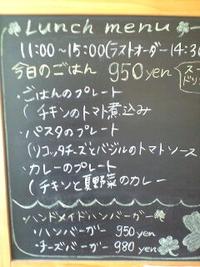 Lunch menu
11:00~15:00(ラストオーダー14:30
今日のごはん 950yen
・ごはんのプレート
(チキンのトマト煮込み
・パスタのプレート
(リコッタチーズとバジルのトマトソース
・カレーのプレート
(チキンと夏野菜のカレー
・ハンドメイドハンバーガー
・ハンバーガー 950yen
・チーズバーガー 980yen